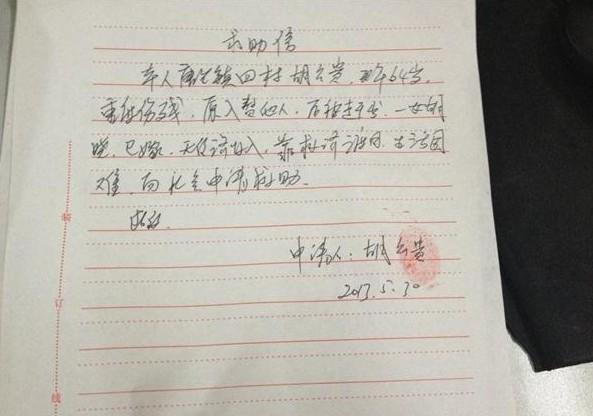 求助信
本人康庄镇四村胡云贵，现年64岁，
重体伤残，原入赘他人，后被赶出，一女胡
晓，已嫁，无经济收入，靠救济渡日，生活困
难，向社会申请救助。
此致
申请人：胡云贵
2013.5.30
装
订
线